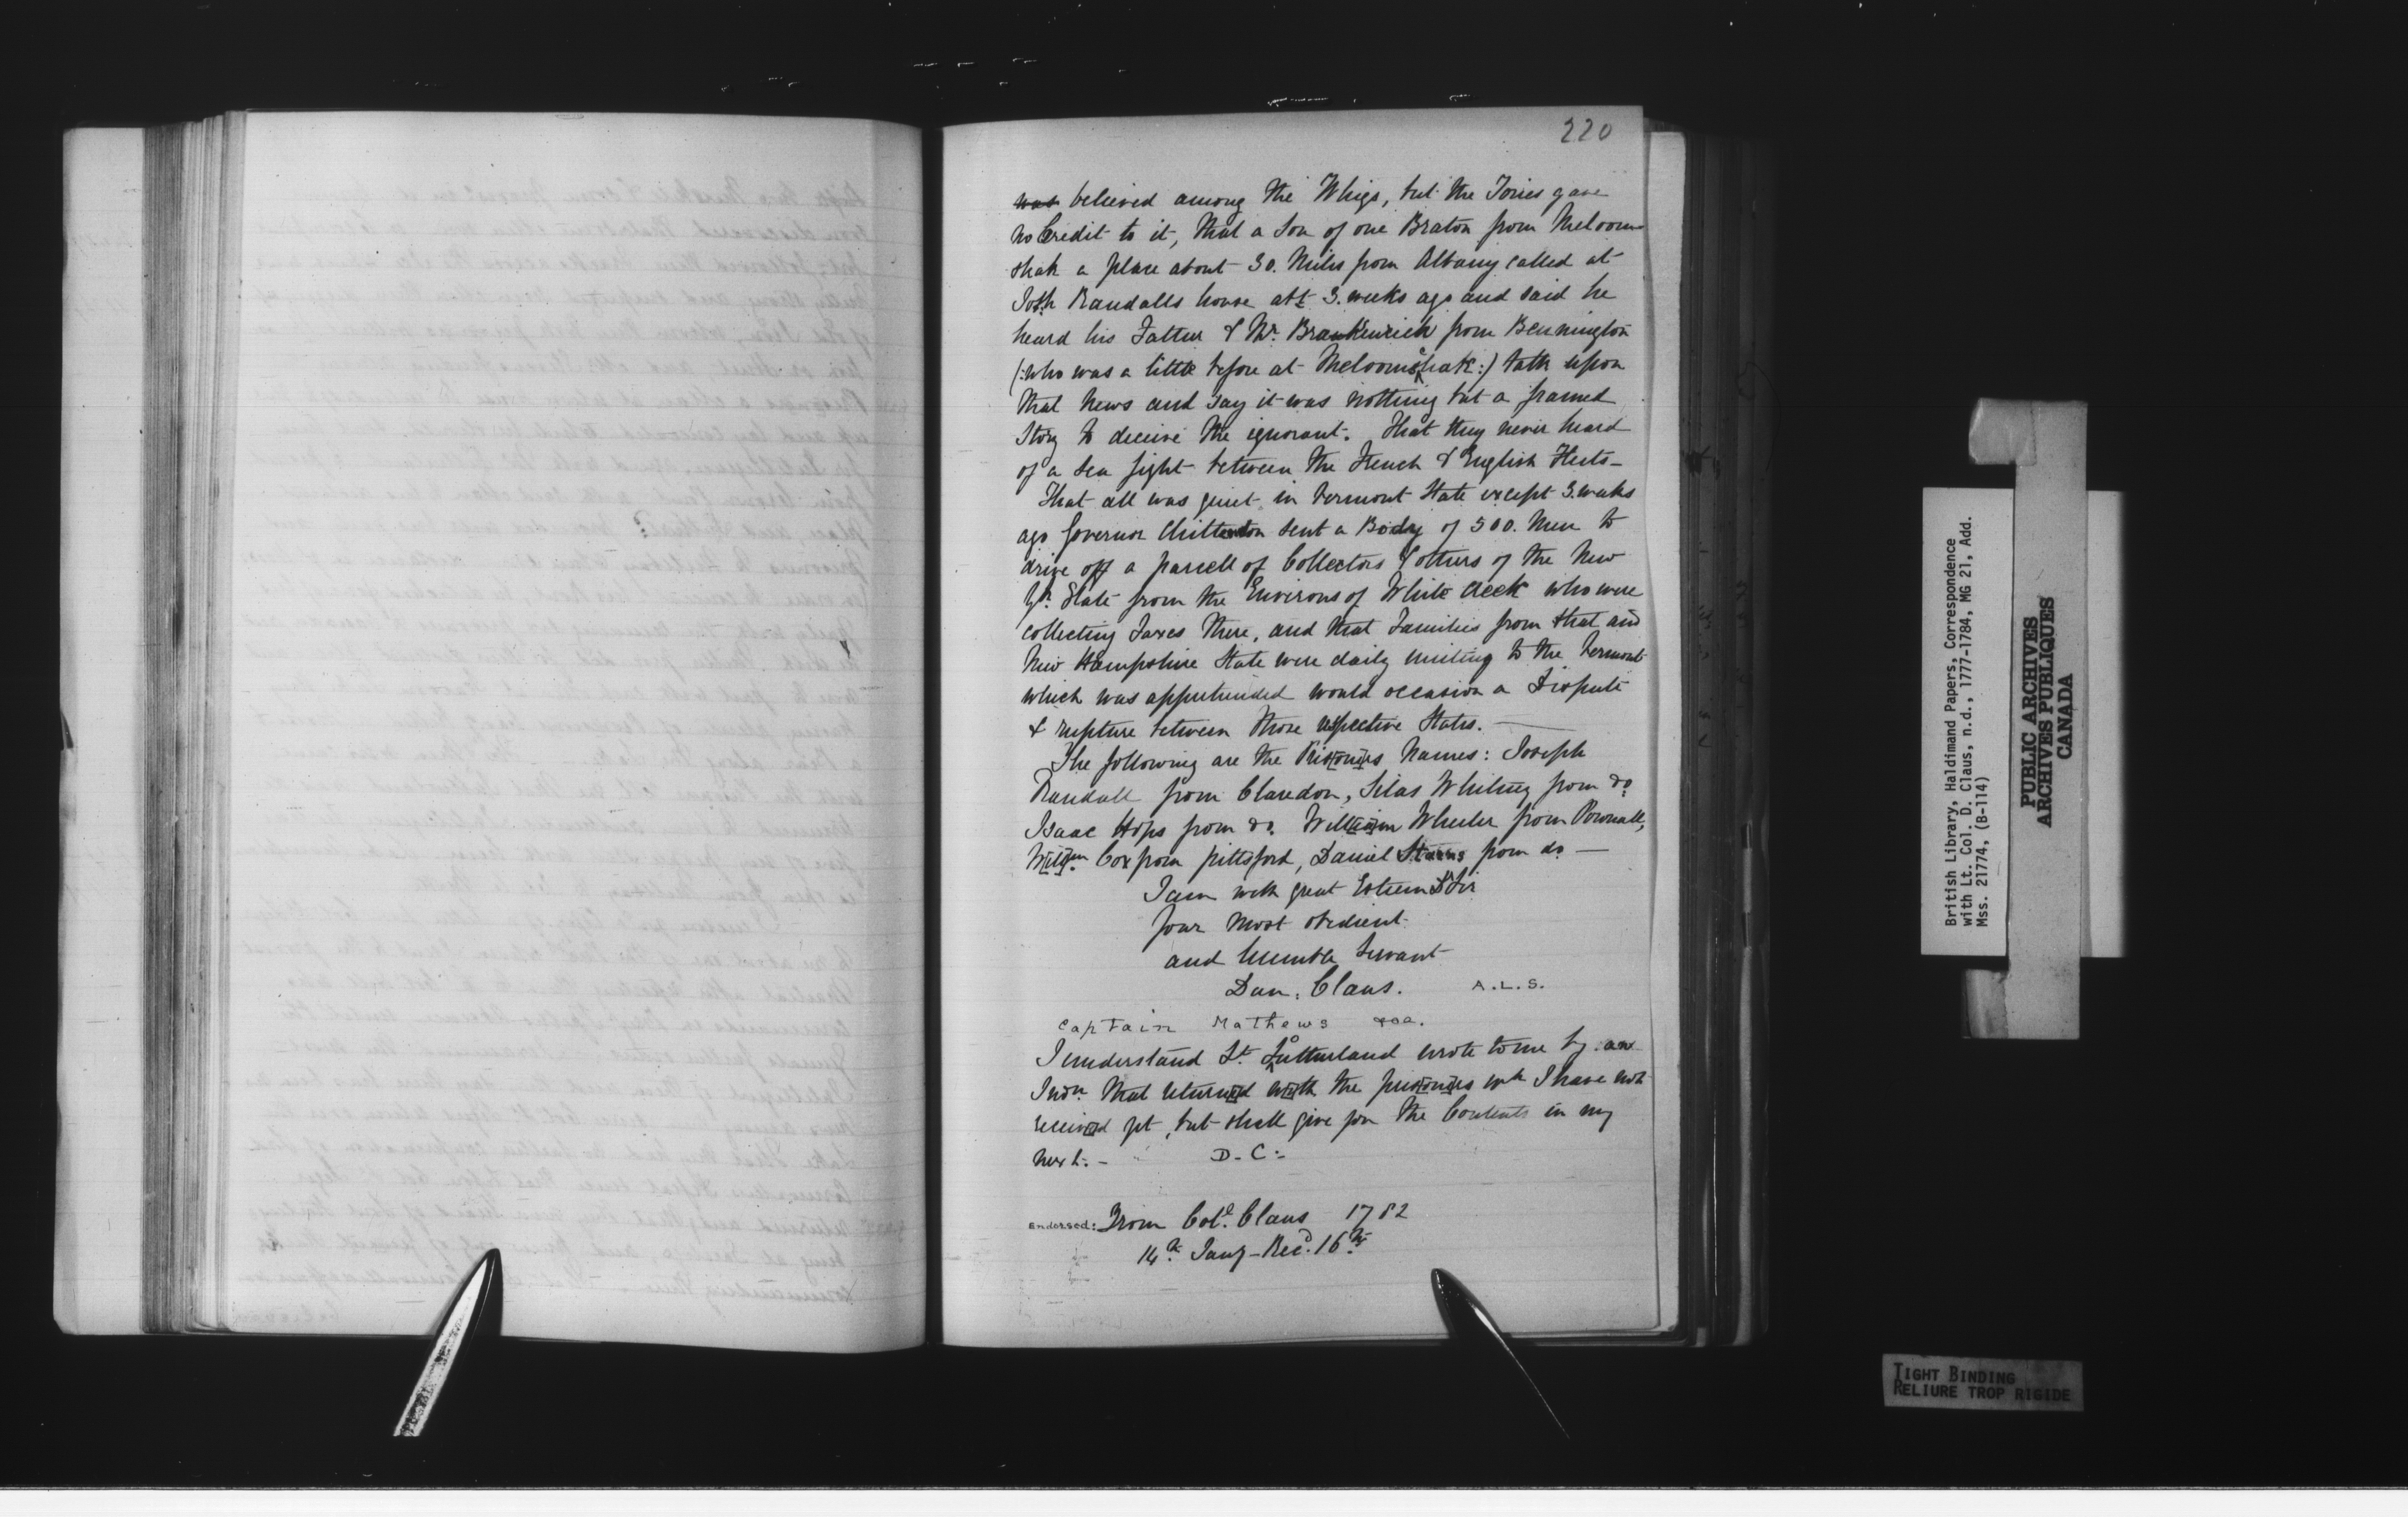 220
was believed among the Whigs, but the Tories gave
no Credit to it, that a Son of one Braton from Meloom
shak a place about 30. Miles from Albany called at
Josh Randalls house abt 3. weeks ago and said he
heard his Father & Mr. Brankenrich from Bennington
(: who was a little before at Meloomshak :) talk upon
that News and say it was nothing but a framed
Story to deceive the ignorant. That they never heard
of a Sea fight between the French & English Fleets —
That all was quiet in Vermont State except 3. weeks
ago Governor Chittenton sent a Body of 500. Men to
drive off a parcell of Collectors & others of the New
Yk. State from the Environs of White Creek who were
collecting Taxes there, and that Families from that and
New Hampshire State were daily uniting to the Vermont
which was apprehended would occasion a Dispute
& rupture between those respective States. —
The following are the Prisoners Names: Joseph
Randall from Claredon, Silas Whiting from do.
Isaac Hips from do. William Wheeler from Pownall,
Willm. Cox from pittsford, Daniel from do —
I am with great Esteem Dr Sir
Your most obedient
and humble Servant
Dan: Claus. A.L.S.
Captain Mathews &ca.
I understand Lt. Sutherland wrote to me by an
Indn. that returned with the prisoners wch I have not
received yt, but shall give you the Contents in my
next. - D-C:-
Endorsed: From Col. Claus 1782
14th Jany - Recd. 16th
British Library, Haldimand Papers, Correspondence
with Lt. Col. D. Claus, n.d., 1777-1784, MG 21, Add.
Mss. 21774, (B-114)
PUBLIC ARCHIVES
ARCHIVES PUBLIQUES
CANADA
TIGHT BINDING
RELIURE TROP RIGIDE